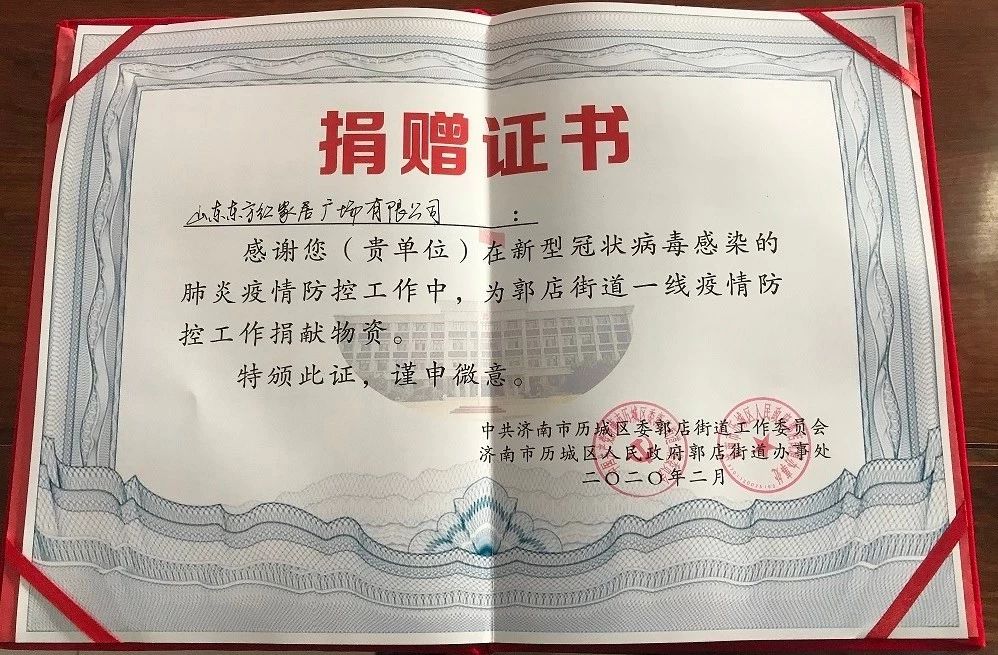 捐赠证书
山东东方红家居广场有限公司：
感谢您（贵单位）在新型冠状病毒感染的
肺炎疫情防控工作中，为郭店街道一线疫情防
控工作捐献物资。
特颁此证，谨申微意。
中共济南市历城区委郭店街道工作委员会
济南市历城区人民政府郭店街道办事处
二〇二〇年二月